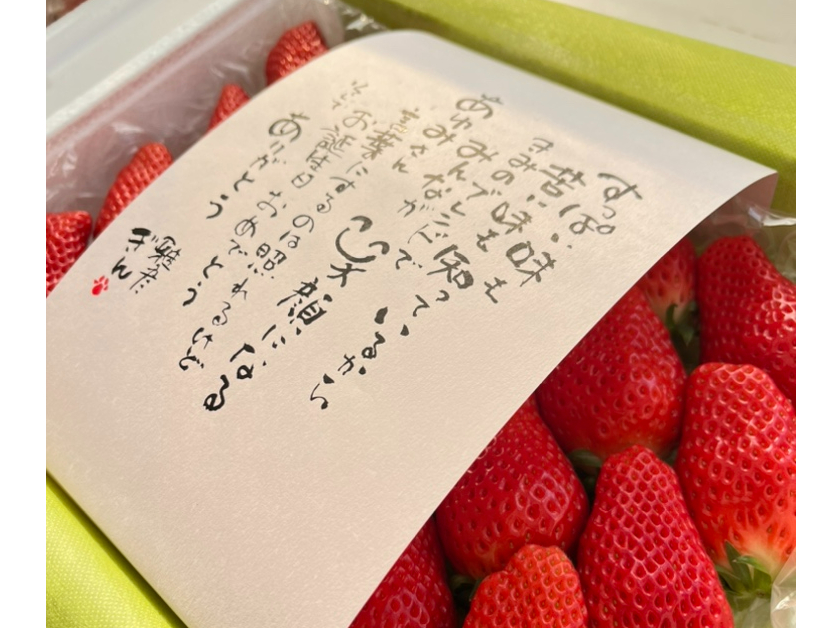 すっぱい味も
苦い味も
知っているから
きみのブレンドで
みんなが
笑顔になる
あゆみさん
言葉にするのは照れるけど
お誕生日おめでとう
ありがとう
ぎん